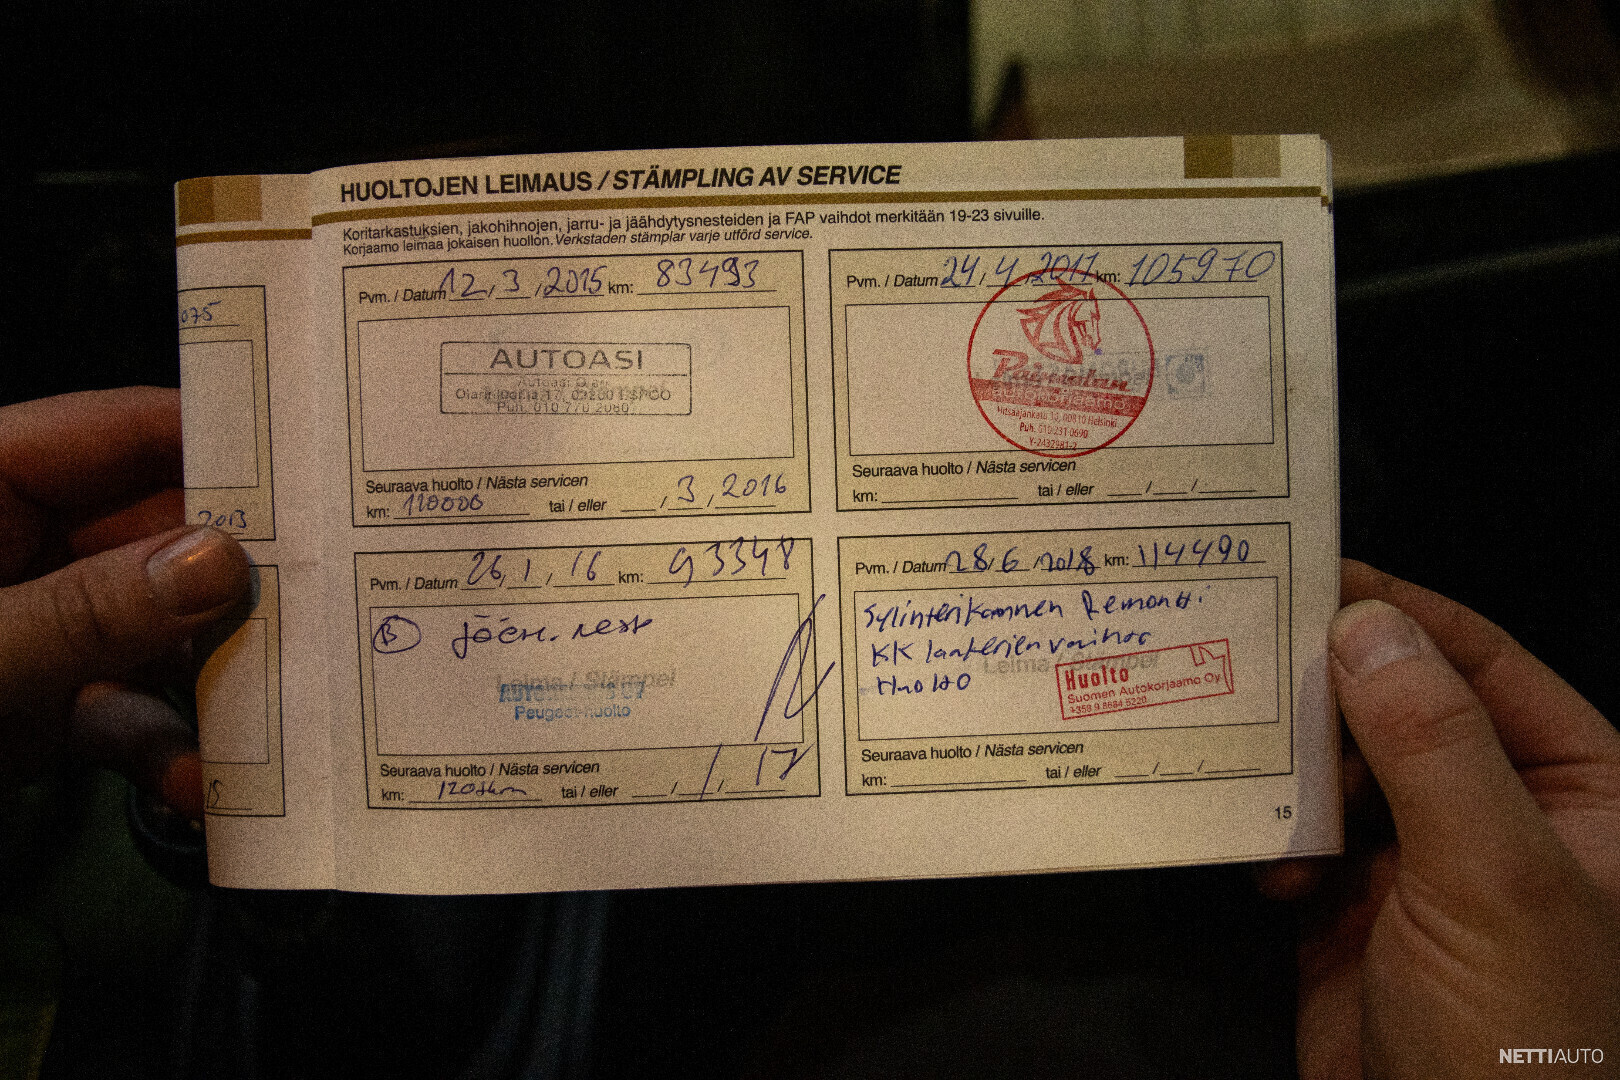 HUOLTOJEN LEIMAUS / STÄMPLING AV SERVICE
Koritarkastuksien, jakohihnojen, jarru- ja jäähdytysnesteiden ja FAP vaihdot merkitään 19-23 sivuille.
Korjaamo leimaa jokaisen huollon. Verkstaden stämplar varje utförd service.
075
2013
15
Pvm. / Datum 12, 3, 2015 km: 83493
AUTOASI
Autoasi
02200 ESPOO
Puh. 010 770 2080
Seuraava huolto / Nästa servicen
km: 110000 tai / eller / 3, 2016
Pvm. / Datum 24, 4, 2017 km: 105970
autokorjaamo
Hitsaajankatu 10, 00810 Helsinki
Puh. 010 231 0690
Y-2432981-2
Seuraava huolto / Nästa servicen
km: tai / eller / /
Pvm. / Datum 26, 1, 16 km: 93348
B jääh. nest
Leima / Stämpel
Peugeot-huolto
Seuraava huolto / Nästa servicen
km: 120tkm tai / eller / 1, 17
Pvm. / Datum 28, 6, 2018 km: 114490
Sylinterikannen Remontti
KK laakerien vaihto
Huolto
Leima / Stämpel
Huolto
Suomen Autokorjaamo Oy
+358 9 8684 5220
Seuraava huolto / Nästa servicen
km: tai / eller / /
15
NETTIAUTO